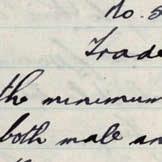 No. 5
Trade
the minimum
both male an